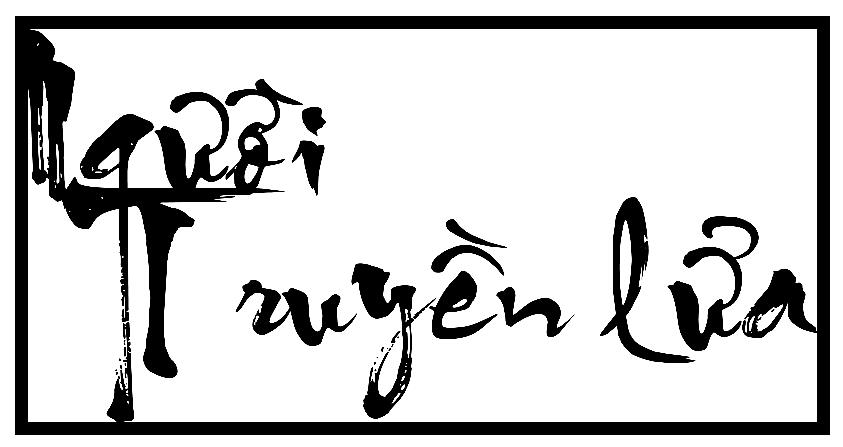 Người
Truyền lửa